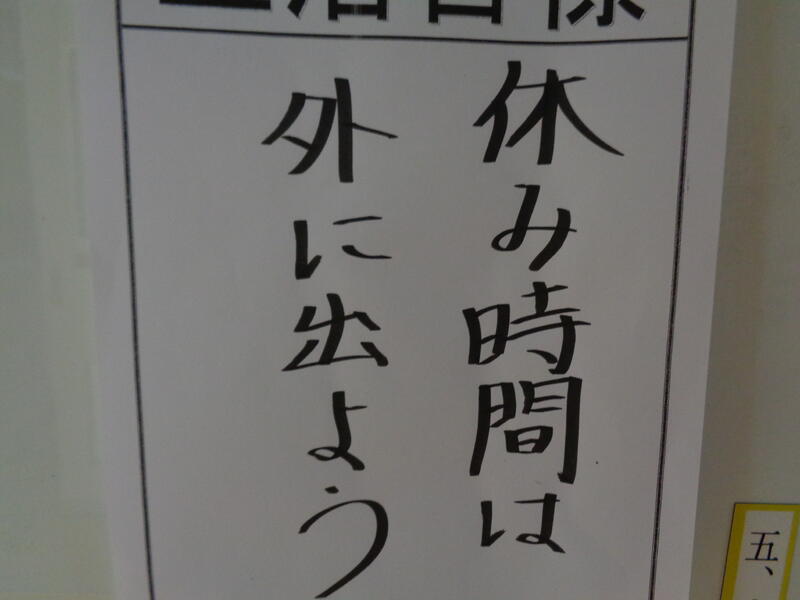 生活目標
休み時間は
外に出よう
五、